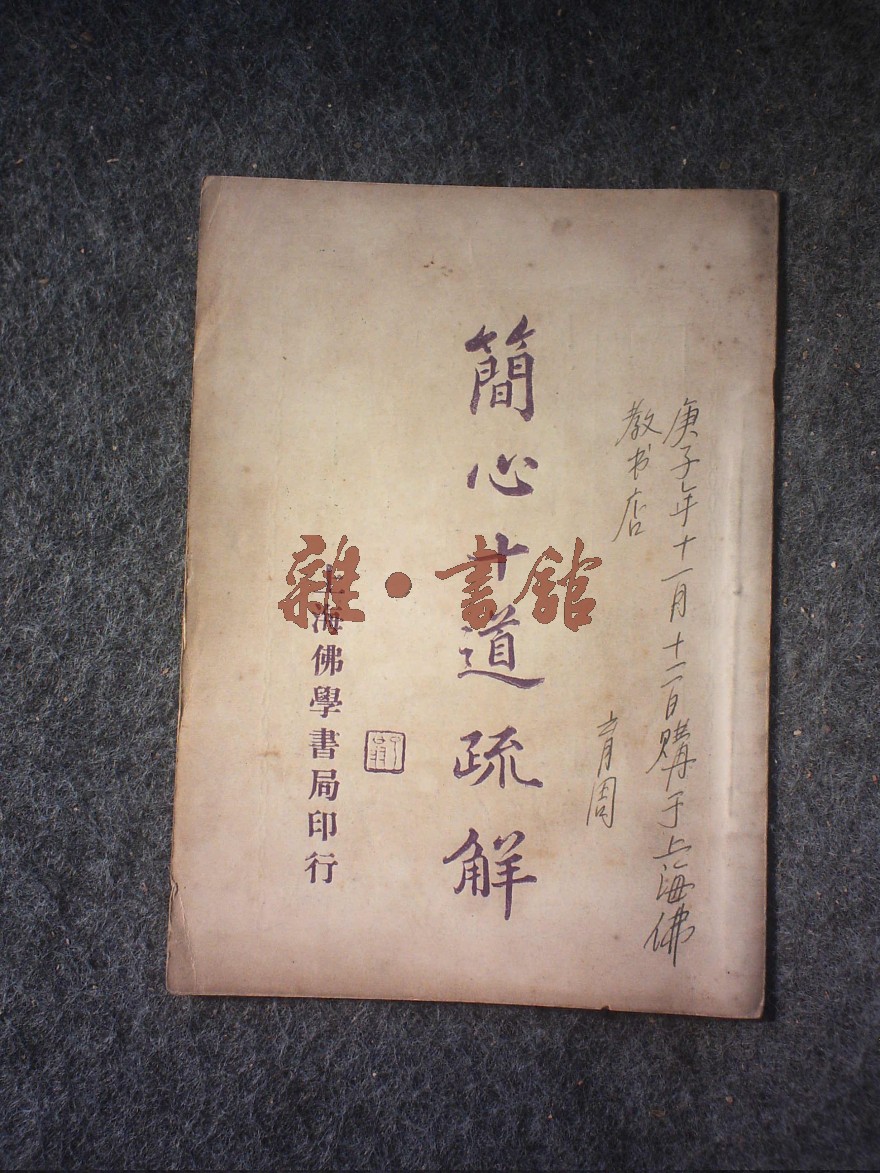 庚子年十一月十二日購于上海佛
教书店
育周
簡心十道疏解
上海佛學書局印行
雜·書館